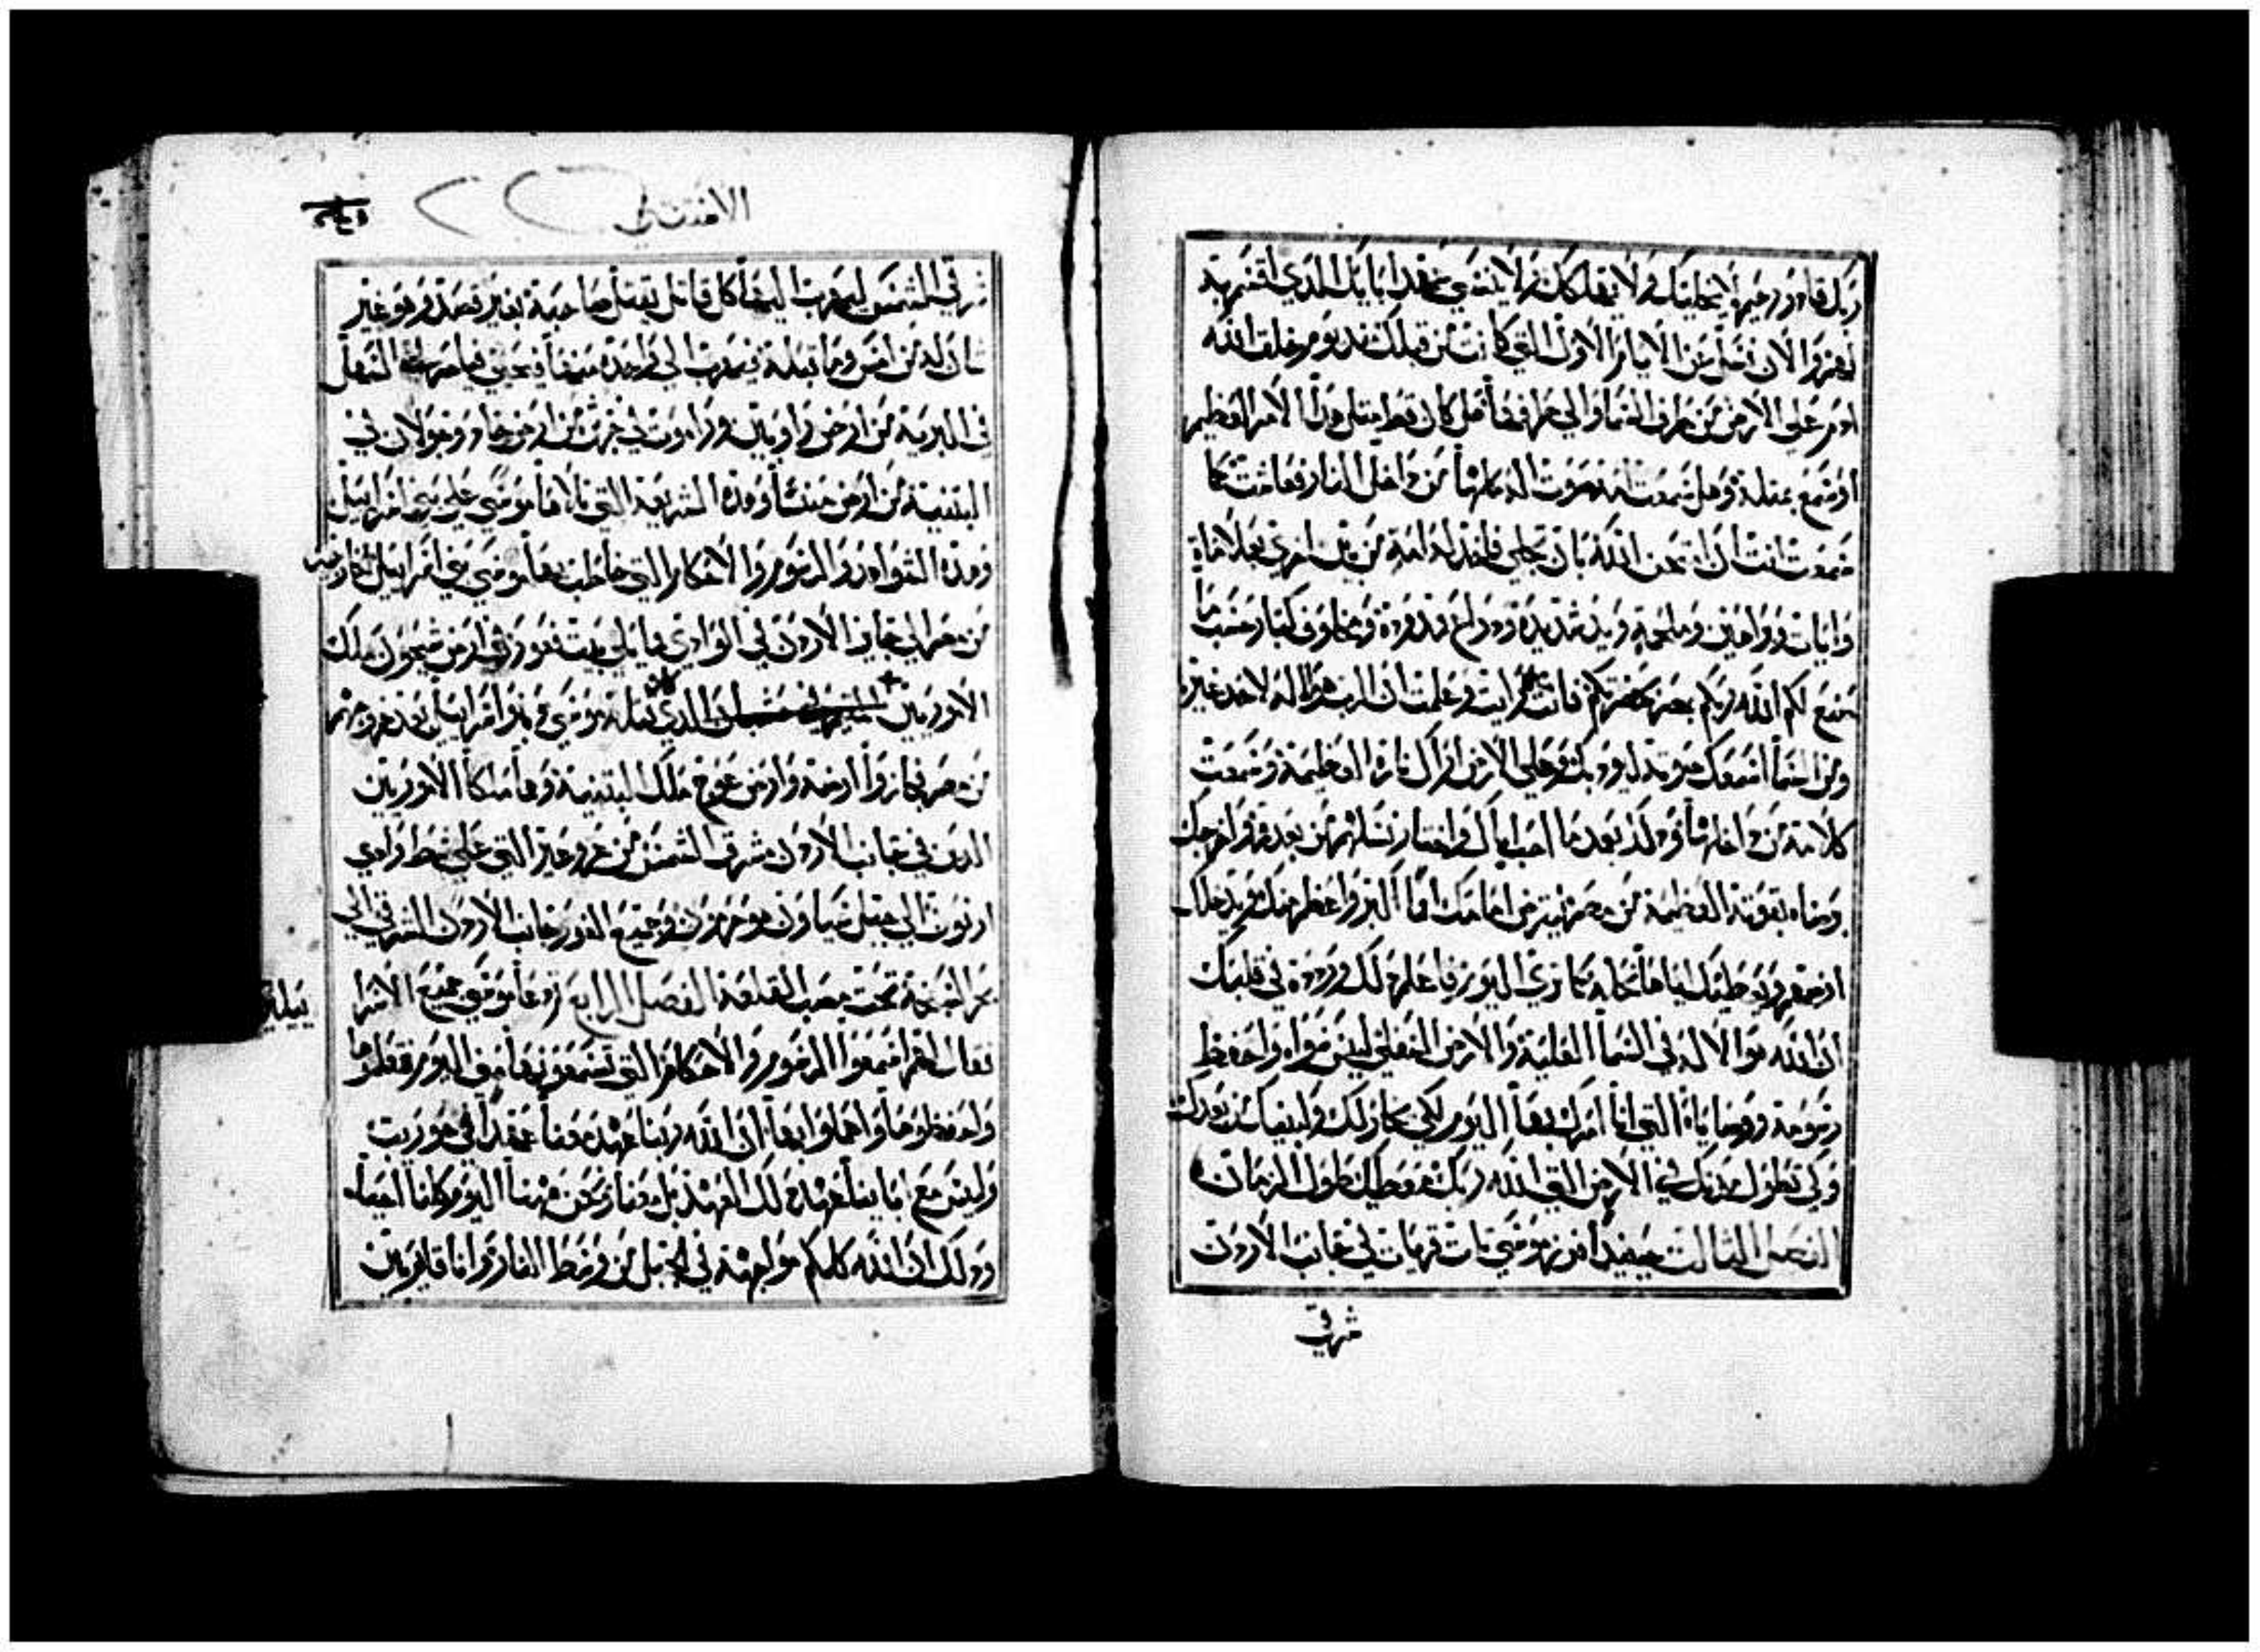 ربك قادر رحيم لا يخليك ولا يهلكك ولا ينسى عهد ابايك الذي اقسم به
لهم والان تسل عن الايام الاول التي كانت من قبلك من يوم خلق الله
ادم علي الارض من طرف السما والي طرفها هل كان قط مثل هذا الامر العظيم
او سمع بمثله وهل سمعت امه صوت الله مكلمها من داخل النار فعاشت كما
سمعت انت او امتحن الله بان يجي فاخذ له امة من بين اخري بعلامات
وايات وبراهين وملحمة ويد شديدة ودراع ممدودة ومخاوف كبار حسب ما
صنع لكم الله ربكم بمصر بحضرتكم فانت رايت وعلمت ان الرب هو الله لا احد غيره
ومن السما اسمعك صوته ليودبك وعلي الارض اراك ناره العظيمة وسمعت
كلامه من داخلها وذلك بعد ما احب اباك واختار نسلهم من بعدهم واخرجك
برضاه بقوته العظيمة من مصر ليقرض امامك امما اكبر واعظم منك فيدخلك
ارضهم ويعطيك اياها نحلة كما تري اليوم فاعلم ذلك وردده في قلبك
ان الله هو الاله في السما العلية والارض السفلي ليس سواه واحفظ
رسومه ووصاياه التي انا امرك بها اليوم لكي يحاز لك ولبنيك من بعدك
وكي تطول مدتك في الارض التي الله ربك معطيك طول الزمان
الفصل الثالث حينيذ افرز موسي ثلث قريات في جانب الاردن
شرقي
الاستثني
شرقي الشمس ليهرب اليها كل قاتل يقتل صاحبه بغير قصد وهو غير
شان له من امس وما قبله فيهرب الي واحدة منها فيحيى باصر التي السهل
في البرية من ارض راوبين وراموت في جرش من ارض جاد وجولان في
البتنية من ارض منشا وهذه الشريعة التي تلاها موسي علي بني اسراييل
وهذه الشواهد والرسوم والاحكام التي خاطب بها موسي بني اسراييل بخارجهم
من مصر الي جانب الاردن في الوادي مايلي بيت فغور في ارض سيحون ملك
الاموريين الذي قتله موسي وبنوا اسراييل بعد خروجهم
من مصر فحازوا ارضه وارض عوج ملك البتنية وهما ملكا الاموريين
الذين في جانب الاردن مشرق الشمس من عروعير التي علي شط وادي
ارنون الي جبل سياون هو حرمون وجميع الغور جانب الاردن الشرقي الي
بحر السبخة تحت مصب القلعة الفصل الرابع ودعا موسي جميع الاسرا
ييلين
فقال لهم اسمعوا الرسوم والاحكام التي تسمعونها مني اليوم فتعلموها
واحفظوها واعملوا بها ان الله ربنا عهد معنا عهدا في حوريب
وليس مع اباينا عهد ذلك العهد بل معنا نحن هنا اليوم كلنا احيا
وذلك ان الله كلمكم مواجهة في الجبل من وسط النار وانا قايم بين